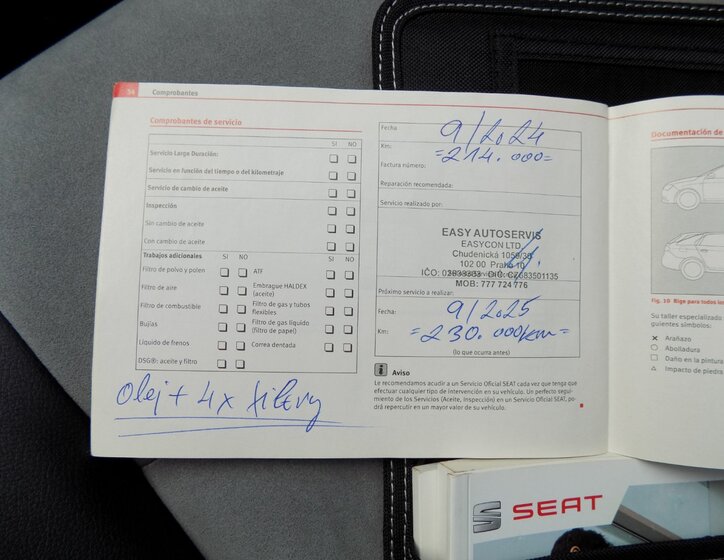 54 Comprobantes
Comprobantes de servicio
SI NO
Servicio Large Duración:
Servicio en función del tiempo o del kilometraje
Servicio de cambio de aceite
Inspección
Sin cambio de aceite
Con cambio de aceite
Trabajos adicionales SI NO SI NO
Filtro de polvo y polen
ATF
Filtro de aire
Embrague HALDEX
(aceite)
Filtro de combustible
Filtro de gas y tubos
flexibles
Bujías
Filtro de gas líquido
(filtro de papel)
Líquido de frenos
Correa dentada
DSG®: aceite y filtro
Olej + 4x filtry
Fecha
9/2024
Km:
=214.000=
Factura número:
Reparación recomendada:
Servicio realizado por:
EASY AUTOSERVIS
EASYCON LTD
Chudenická 1059/30
102 00 Praha 10
MOB: 777 724 776
Próximo servicio a realizar:
Fecha:
9/2025
Km:
=230.000km=
(lo que ocurra antes)
i Aviso
Le recomendamos acudir a un Servicio Oficial SEAT cada vez que tenga que
efectuar cualquier tipo de intervención en su vehículo. Un perfecto segui-
miento de los Servicios (Aceite, Inspección) en un Servicio Oficial SEAT, po-
drá repercutir en un mayor valor de su vehículo.
Documentación de
Fig. 10 Rige para todos los
Su taller especializado
guientes símbolos:
Arañazo
Abolladura
Daño en la pintura
Impacto de piedra
SEAT